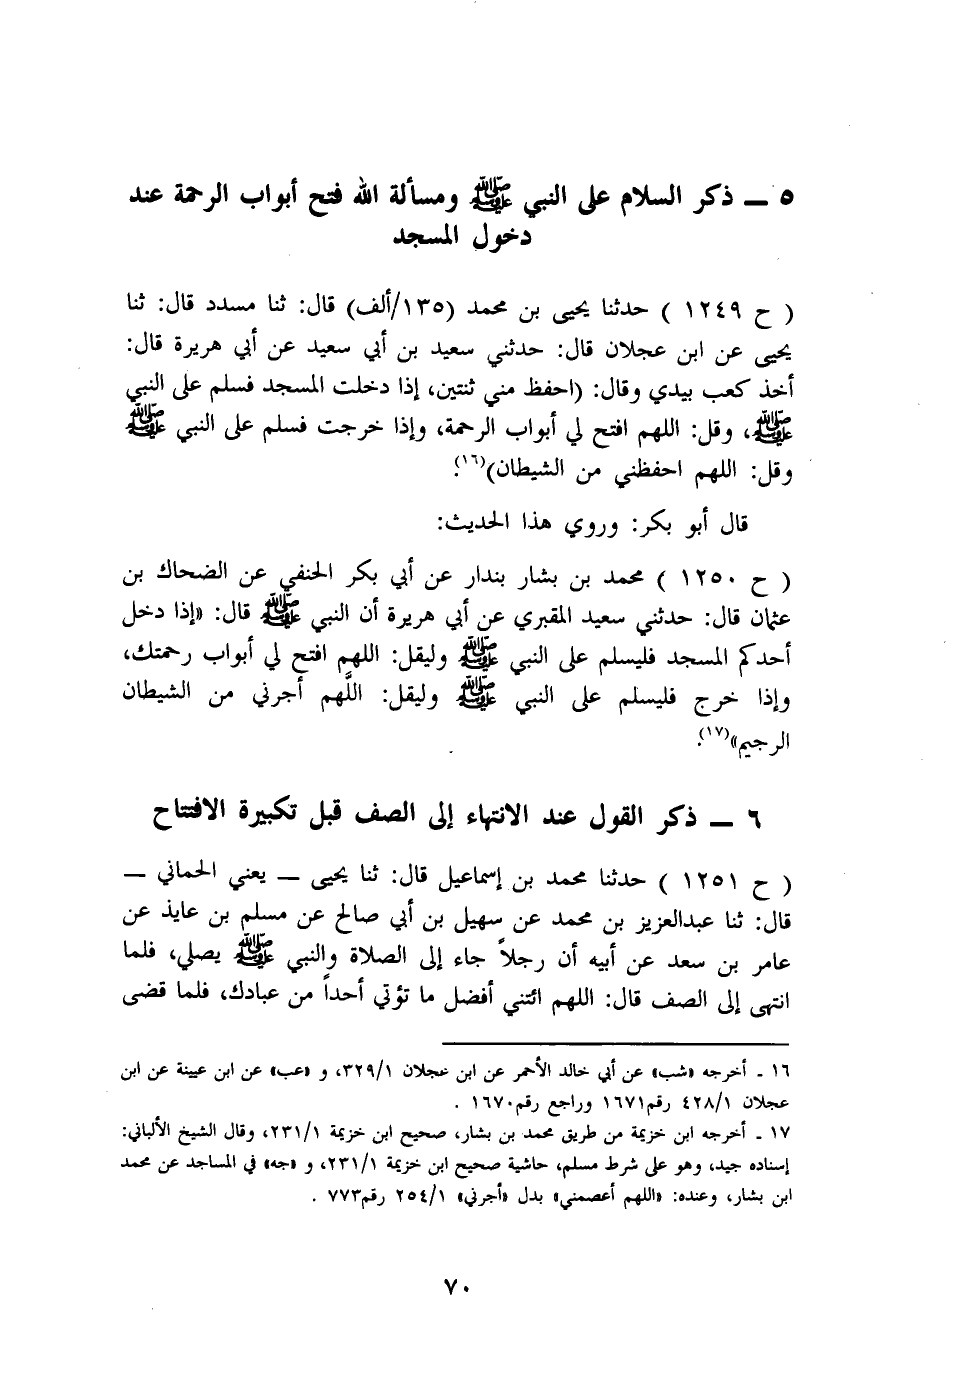 ٥ ــ ذكر السلام على النبي ﷺ ومسألة الله فتح أبواب الرحمة عند
دخول المسجد
( ح ١٢٤٩ ) حدثنا يحيى بن محمد (١٣٥/ألف) قال: ثنا مسدد قال: ثنا
يحيى عن ابن عجلان قال: حدثني سعيد بن أبي سعيد عن أبي هريرة قال:
أخذ كعب بيدي وقال: (احفظ مني ثنتين، إذا دخلت المسجد فسلم على النبي
ﷺ، وقل: اللهم افتح لي أبواب الرحمة، وإذا خرجت فسلم على النبي ﷺ
وقل: اللهم احفظني من الشيطان)(١٦).
قال أبو بكر: وروي هذا الحديث:
( ح ١٢٥٠ ) محمد بن بشار بندار عن أبي بكر الحنفي عن الضحاك بن
عثمان قال: حدثني سعيد المقبري عن أبي هريرة أن النبي ﷺ قال: «إذا دخل
أحدكم المسجد فليسلم على النبي ﷺ وليقل: اللهم افتح لي أبواب رحمتك،
وإذا خرج فليسلم على النبي ﷺ وليقل: اللَّهم أجرني من الشيطان
الرجيم»(١٧).
٦ ــ ذكر القول عند الانتهاء إلى الصف قبل تكبيرة الافتتاح
( ح ١٢٥١ ) حدثنا محمد بن إسماعيل قال: ثنا يحيى ــ يعني الحماني ــ
قال: ثنا عبدالعزيز بن محمد عن سهيل بن أبي صالح عن مسلم بن عايذ عن
عامر بن سعد عن أبيه أن رجلاً جاء إلى الصلاة والنبي ﷺ يصلي، فلما
انتهى إلى الصف قال: اللهم ائتني أفضل ما تؤتي أحداً من عبادك، فلما قضى
١٦ ـ أخرجه «شب» عن أبي خالد الأحمر عن ابن عجلان ٣٢٩/١، و «عب» عن ابن عيينة عن ابن
عجلان ٤٢٨/١ رقم١٦٧١ وراجع رقم١٦٧٠ .
١٧ ـ أخرجه ابن خزيمة من طريق محمد بن بشار، صحيح ابن خزيمة ٢٣١/١، وقال الشيخ الألباني:
إسناده جيد، وهو على شرط مسلم، حاشية صحيح ابن خزيمة ٢٣١/١، و «جه» في المساجد عن محمد
ابن بشار، وعنده: «اللهم أعصمني» بدل «أجرني» ٢٥٤/١ رقم٧٧٣ .
٧٠